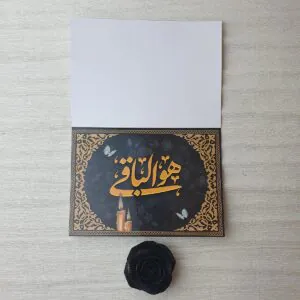 هو الباقی